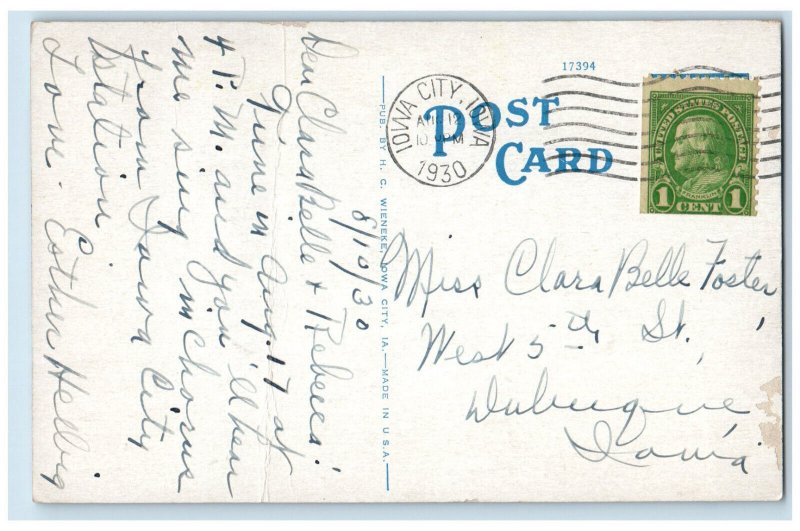 8/10/30
Dear Clara Belle & Rebecca:
Tune in Aug. 17 at
4 P.M. and you'll hear
me sing in chorus
from Iowa City
station.
Love. Esther Helbig
PUB. BY H. C. WIENEKE, IOWA CITY, IA.—MADE IN U.S.A.
17394
POST
CARD
IOWA CITY, IOWA
AUG 12
10 PM
1930
UNITED STATES POSTAGE
FRANKLIN
1 CENT 1
Miss Clara Belle Foster
West 5th St.,
Dubuque,
Iowa